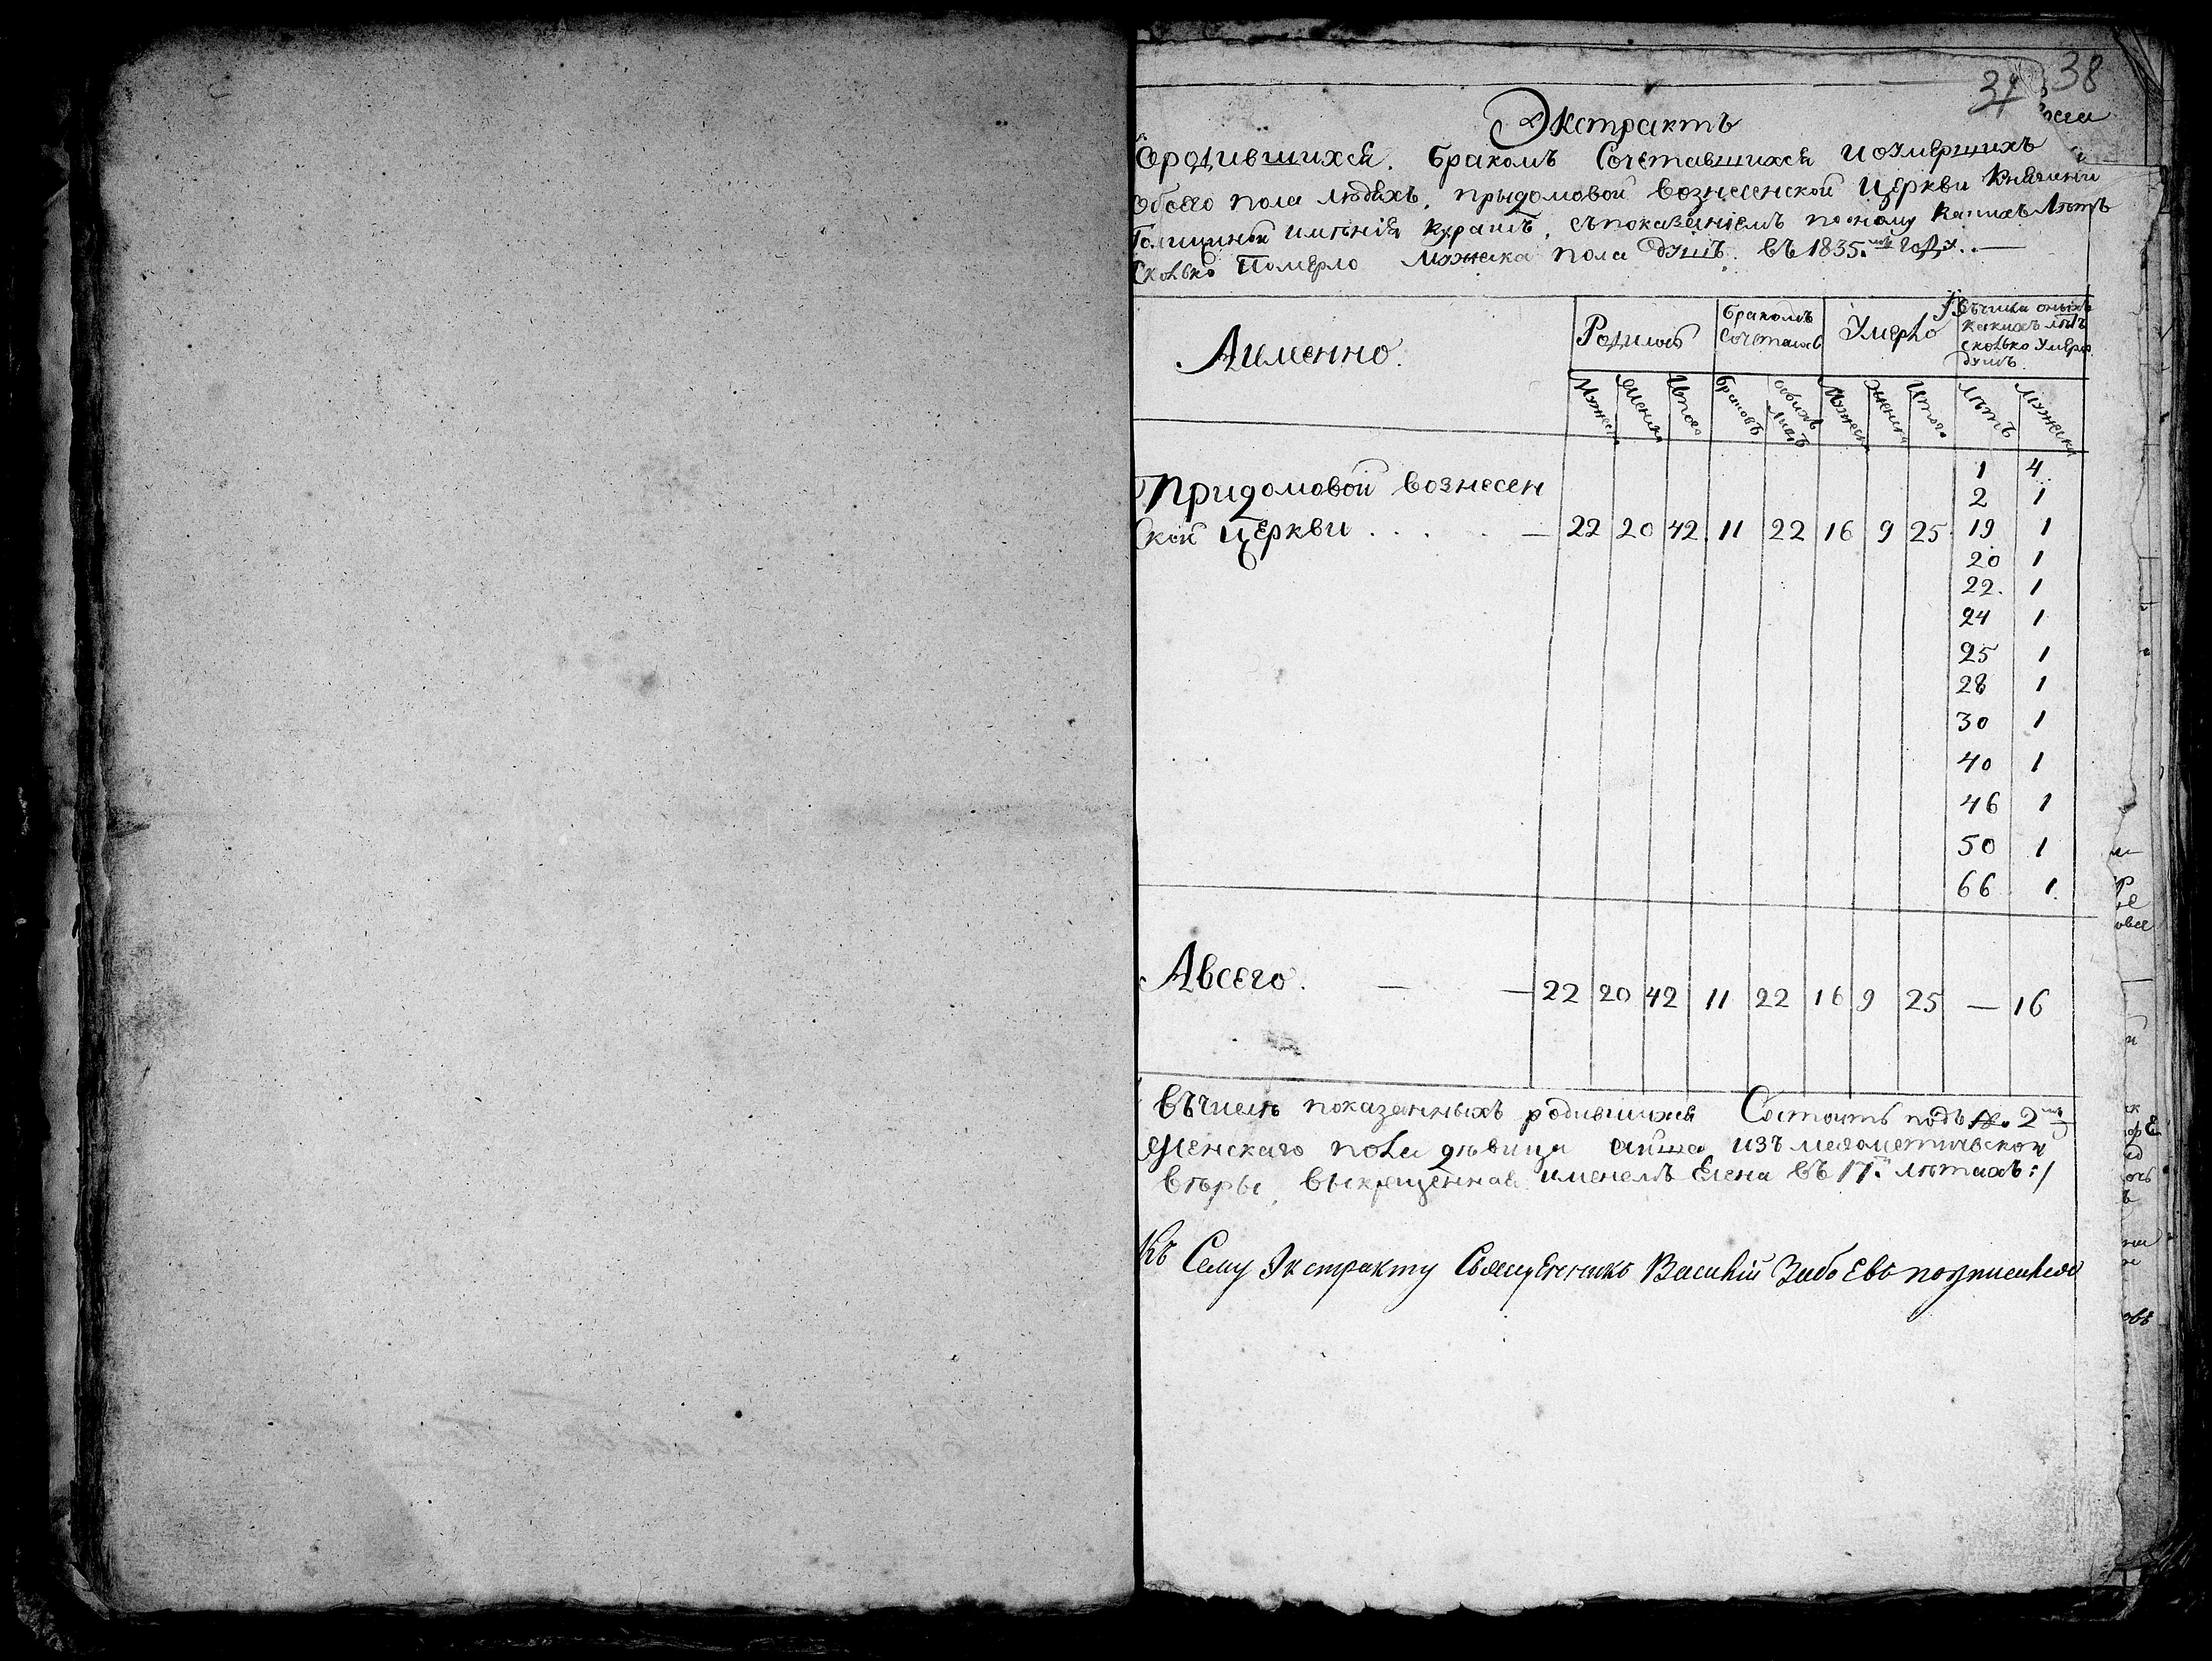 37 38
Экстрактъ
Ородившихся, бракомъ Сочетавшихся иоумершихъ
Обоего пола людѣхъ, придомовой вознесенской Церкви Княгини
Голицыной имѣнія съпоказаніемъ поскольку какихъ Лѣтъ
Сколько Померло Мужеска пола Душъ. въ 1835.мъ годѣ.
Аименно.
Родилось
Бракомъ Сочеталось
Умерло
Въчисла оныхъ какихъ лѣтъ сколько Умерло душъ.
Мужеск Женск Итого Браковъ обоихъ лицъ Мужеск Женска Итого Лѣтъ Мужеска
1 4
Придомовой вознесен
2 1
ской Церкви . . . . — 22 20 42 11 22 16 9 25 19 1
20 1
22. 1
24 1
25 1
28 1
30 1
40 1
46 1
50 1
66 1
Авсего. — — 22 20 42 11 22 16 9 25 — 16
Въчислѣ показанныхъ родившихся Состоитъ подъ № 2
Женскаго пола дѣвица аиша изъ магометанской
вѣры, выкрещенная именемъ Елена въ 17. лѣтахъ:/
Къ Сему Экстракту Священникъ Василій подписался